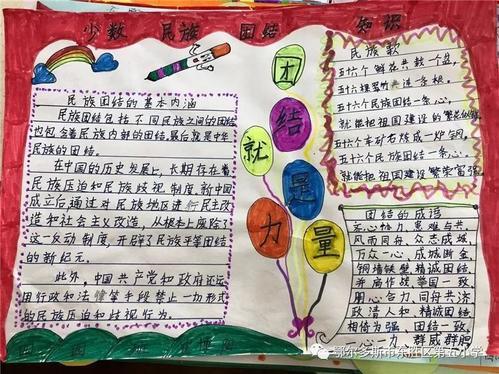 少数 民族 团结 知识
民族团结的基本内涵
民族团结包括不同民族之间的团结
也包含着民族内部的团结。最后就是中华
民族的团结。
在中国的历史发展上,长期存在着
民族压迫和民族歧视制度,新中国
成立后,通过对民族地区进行民主改
造和社会主义改造,从根本上废除了
这一反动制度,开辟了民族平等团结
的新纪元。
此外,中国共产党和政府还运
用行政和法律等手段禁止一切形式
的民族压迫和歧视行为。
团
结
就
是
力
量
民族歌
五十六个
五十六个民族团结一条心,
就能把祖国建设的
五十六个民族团结一条心,
就能把祖国建设繁荣富强
团结的成语
齐心协力 患难与共
风雨同舟,众志成城,
万众一心,成城断金,
铜墙铁壁 精诚团结,
并肩作战 举国一致,
用心合力 同舟共济
精诚团结
相传为强 团结一致,
心一力 群威群胆
鄂尔多斯市东胜区第五小学